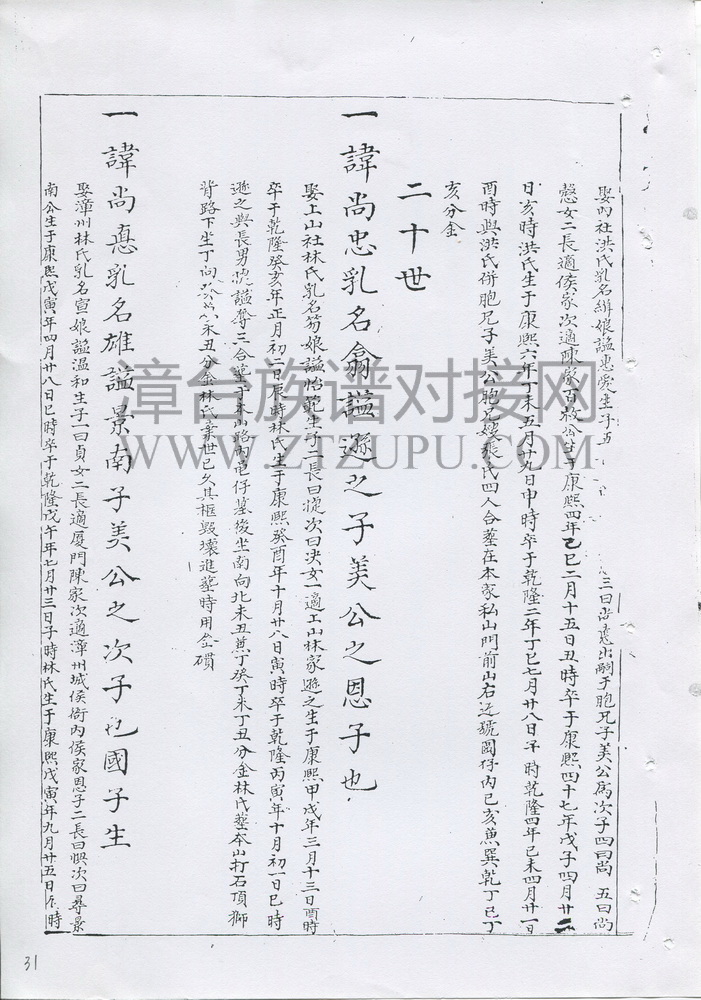 娶內社洪氏乳名緝娘謚惠愛生子五 三曰尚悳出嗣于胞兄子美公為次子四曰尚 五曰尚
慇女二長適侯家次適陳家百枚公生于康熙四年乙巳二月十五日丑時卒于康熙四十七年戊子四月廿二
日亥時洪氏生于康熙六年丁未五月廿九日申時卒于乾隆二年丁巳七月廿八日子時乾隆四年己未四月廿一日
酉時與洪氏併胞兄子美公胞兄嫂張氏四人合塟在本家私山門前山右边號圓仔內巳亥兼巽乾丁巳丁
亥分金
二十世
一諱尚忠乳名翕謚遜之子美公之恩子也
娶上山社林氏乳名笏娘謚怡範生子二長曰 次曰決女一適上山林家遜之生于康熙甲戌年三月十三日酉時
卒于乾隆癸亥年正月初二日辰時林氏生于康熙癸酉年十月廿八日寅時卒于乾隆丙寅年十月初一日巳時
遜之與長男 謚奪三合塟于本山路內 仔墓後坐南向北未丑兼丁癸丁未丁丑分金林氏塟本山打石頂獅
背路下坐丁向癸 未丑分金林氏棄世已久其柩毀壞進塟時用金礶
一諱尚悳乳名雄謚景南子美公之次子也國子生
娶漳州林氏乳名宣娘謚温和生子一曰貞女二長適厦門陳家次適漳州城侯衙內侯家恩子二長曰 次曰尋景
南公生于康熙戊寅年四月廿八日巳時卒于乾隆戊午年七月廿三日子時林氏生于康熙戊寅年九月廿五日 時
漳台族谱对接网
WWW.ZTZUPU.COM
31